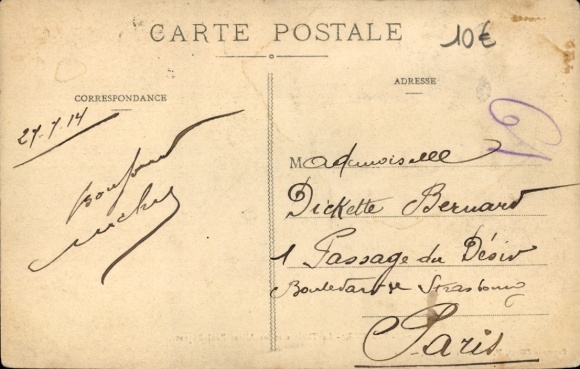 CARTE POSTALE
10€
CORRESPONDANCE
ADRESSE
27.7.14
Bonjour
Mademoiselle
Dickette Bernard
1 Passage du Désir
Boulevard de Strasbourg
Paris